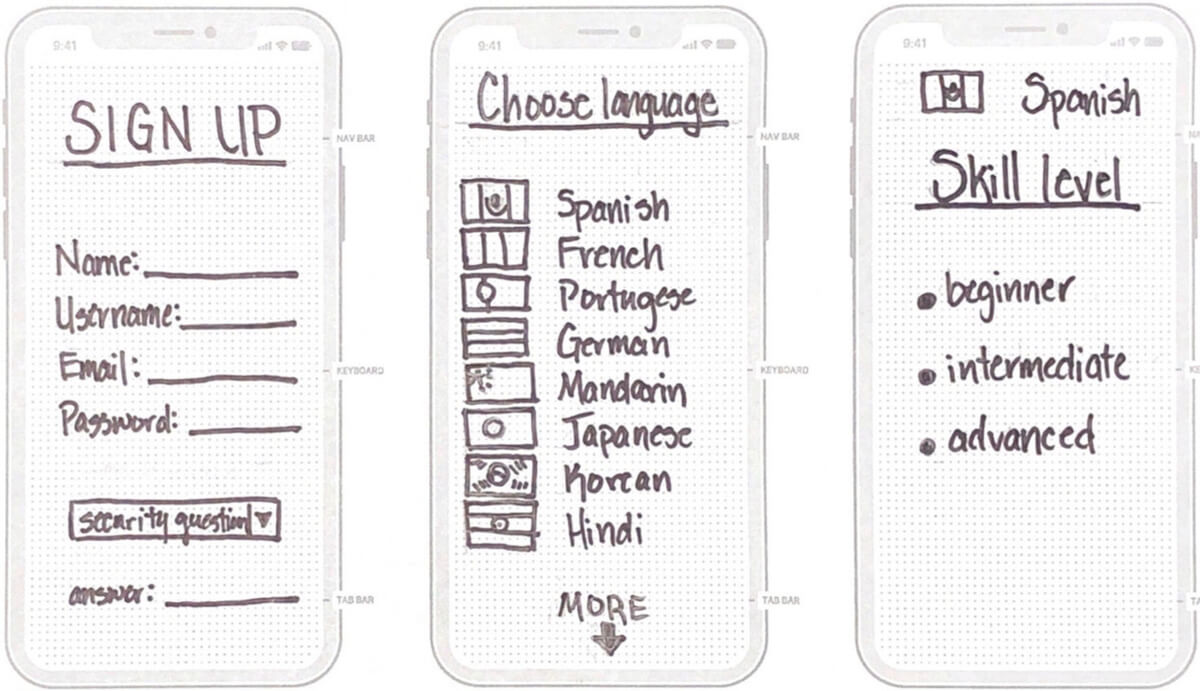 9:41
SIGN UP
NAV BAR
Name:
Username:
Email:
KEYBOARD
Password:
security question
answer:
TAB BAR
9:41
Choose language
NAV BAR
Spanish
French
Portugese
German
KEYBOARD
Mandarin
Japanese
Korean
Hindi
MORE
TAB BAR
9:41
Spanish
NA
Skill level
beginner
intermediate
KE
advanced
TA